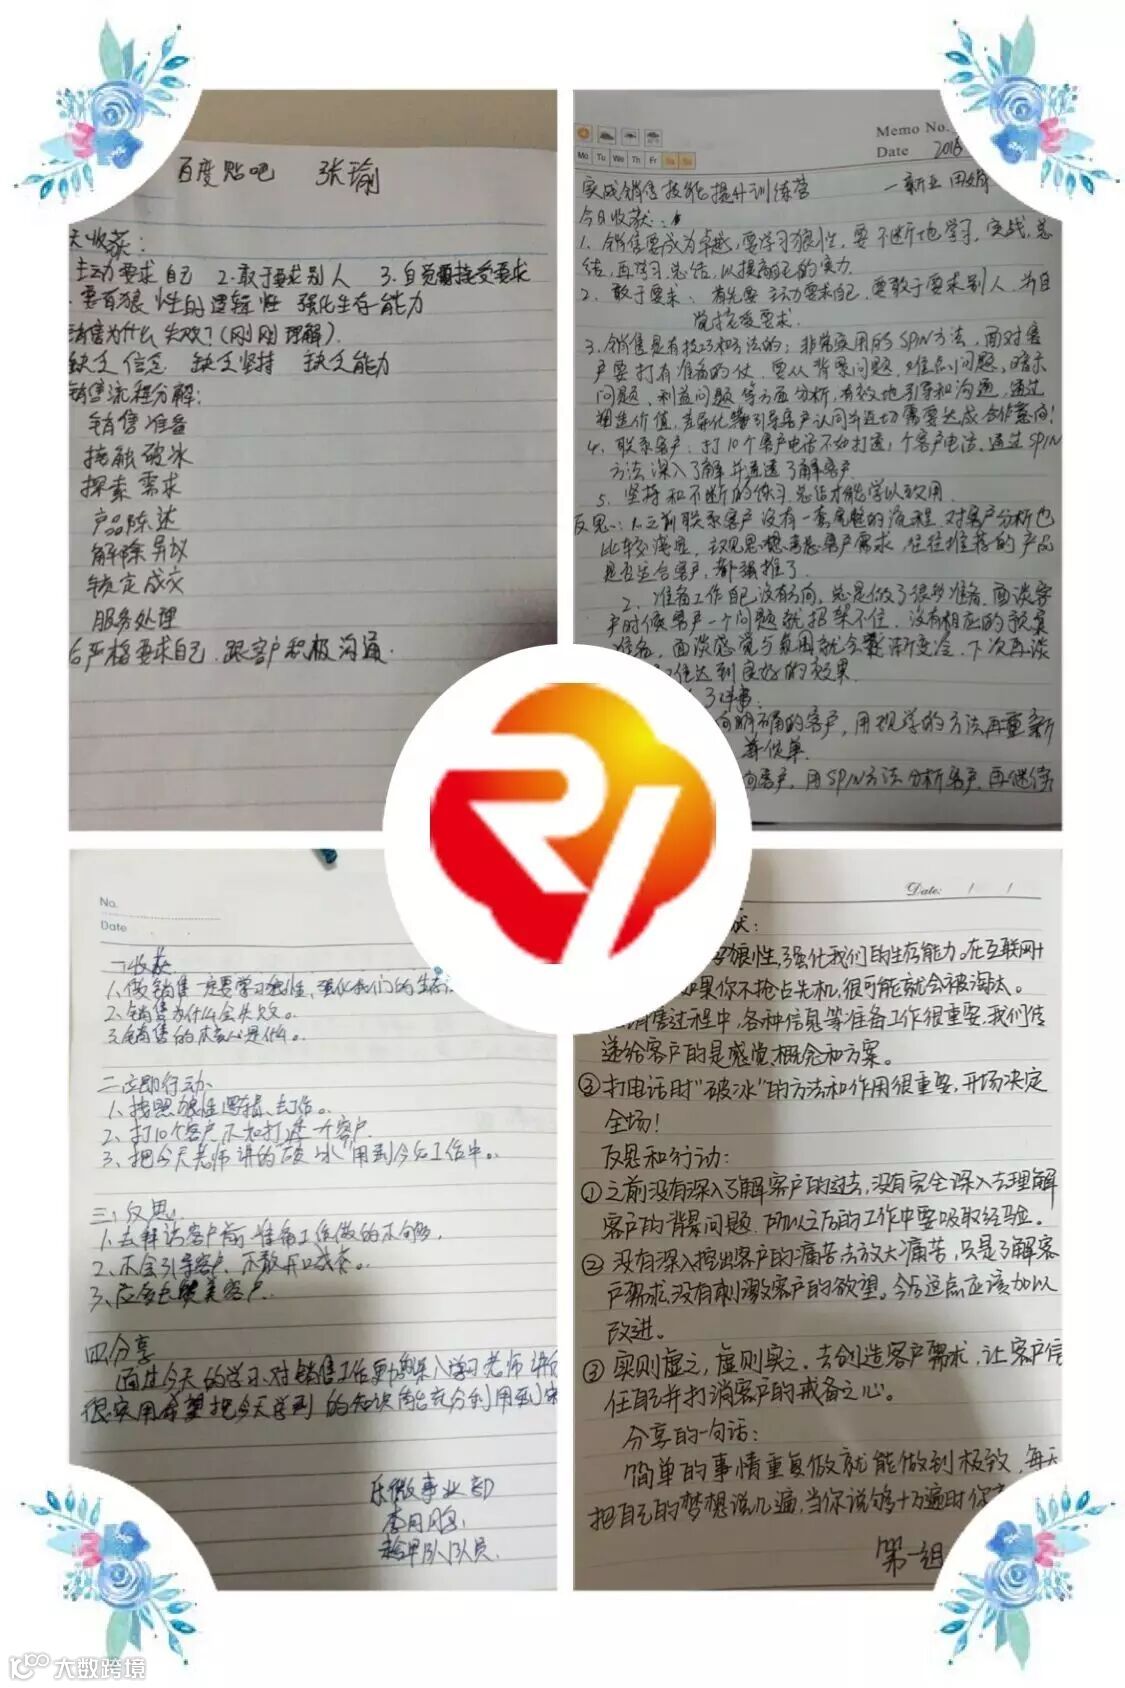 百度贴吧 张瑜
天收获：
主动要求自己 2.敢于要求别人 3.自觉接受要求
要有狼性的逻辑性 强化生存能力
销售为什么失败？(刚刚理解)
缺乏信念 缺乏坚持 缺乏能力
销售流程分解：
销售准备
接触破冰
探索需求
产品陈达
解除异议
锁定成交
服务处理
严格要求自己，跟客户积极沟通.
Memo No.
Mo Tu We Th Fr Sa Su
Date 2018
实战销售技能提升训练营
今日收获：
1、销售要成为卓越，要学习狼性，要不断地学习，实战，总
结，再学习，总结，以提高自己的实力.
2、敢于要求：首先要主动要求自己，要敢于要求别人，为自
觉接受要求.
3、销售是有技巧和方法的：非常实用的SPIN方法，面对客
户要打有准备的仗，要从背景问题，难点问题，暗示
问题，利益问题等方面分析，有效地引导和沟通，通过
塑造价值，差异化引导客户认同并迫切需要达成合作意向！
4、联系客户：打10个客户电话不如打透1个客户电话，通过SPIN
方法深入了解并迅速了解客户.
5、坚持和不断的练习，总结才能学以致用.
反思：1.之前联系客户没有一套完整的流程，对客户分析也
比较浅显，客户需求，往往推荐的产品
是否适合客户，都强推了.
2、准备工作自己没有方向，总是做了很多准备，面谈客
户时候客户一个问题就招架不住，没有相应的预案
准备，面谈感觉与氛围就会渐渐变冷，下次再谈
达到良好的效果.
3件事：
向明确的客户，用现学的方法再重新
客户，用SPIN方法分析客户，再继续
No.
Date
一、收获
1、做销售一定要学习狼性、强化我们的生存
2、销售为什么会失败。
3、销售的核心是什么。
二、立即行动、
1、按照狼性逻辑去工作。
2、打10个客户不如打透一个客户
3、把今天老师讲的“破冰”用到今后工作中。
三、反思
1、去拜访客户前准备工作做的不够多，
2、不会引导客户，不敢开口成交。
3、应多赞美客户.
四分享
通过今天的学习、对销售工作更加深入学习老师讲的
很实用希望把今天学到的知识能充分利用到
乐微事业部
队队员.
Date: / /
狼性，强化我们的生存能力。在互联网+
如果你不抢占先机，很可能就会被淘汰。
销售过程中，各种信息等准备工作很重要，我们传
递给客户的是感觉、概念和方案。
③打电话时“破冰”的方法和作用很重要，开场决定
全场！
反思和行动：
①之前没有深入了解客户的过去，没有完全深入去理解
客户的背景问题，所以之后的工作中要吸取经验。
②没有深入挖出客户的痛苦去放大痛苦，只是了解客
户需求，没有刺激客户的欲望。今后这点应该加以
改进。
③实则虚之，虚则实之，去创造客户需求，让客户信
任自己并打消客户的戒备之心。
分享的一句话：
简单的事情重复做就能做到极致，每天
把自己的梦想说几遍，当你说够十万遍时你
第一组
大数跨境